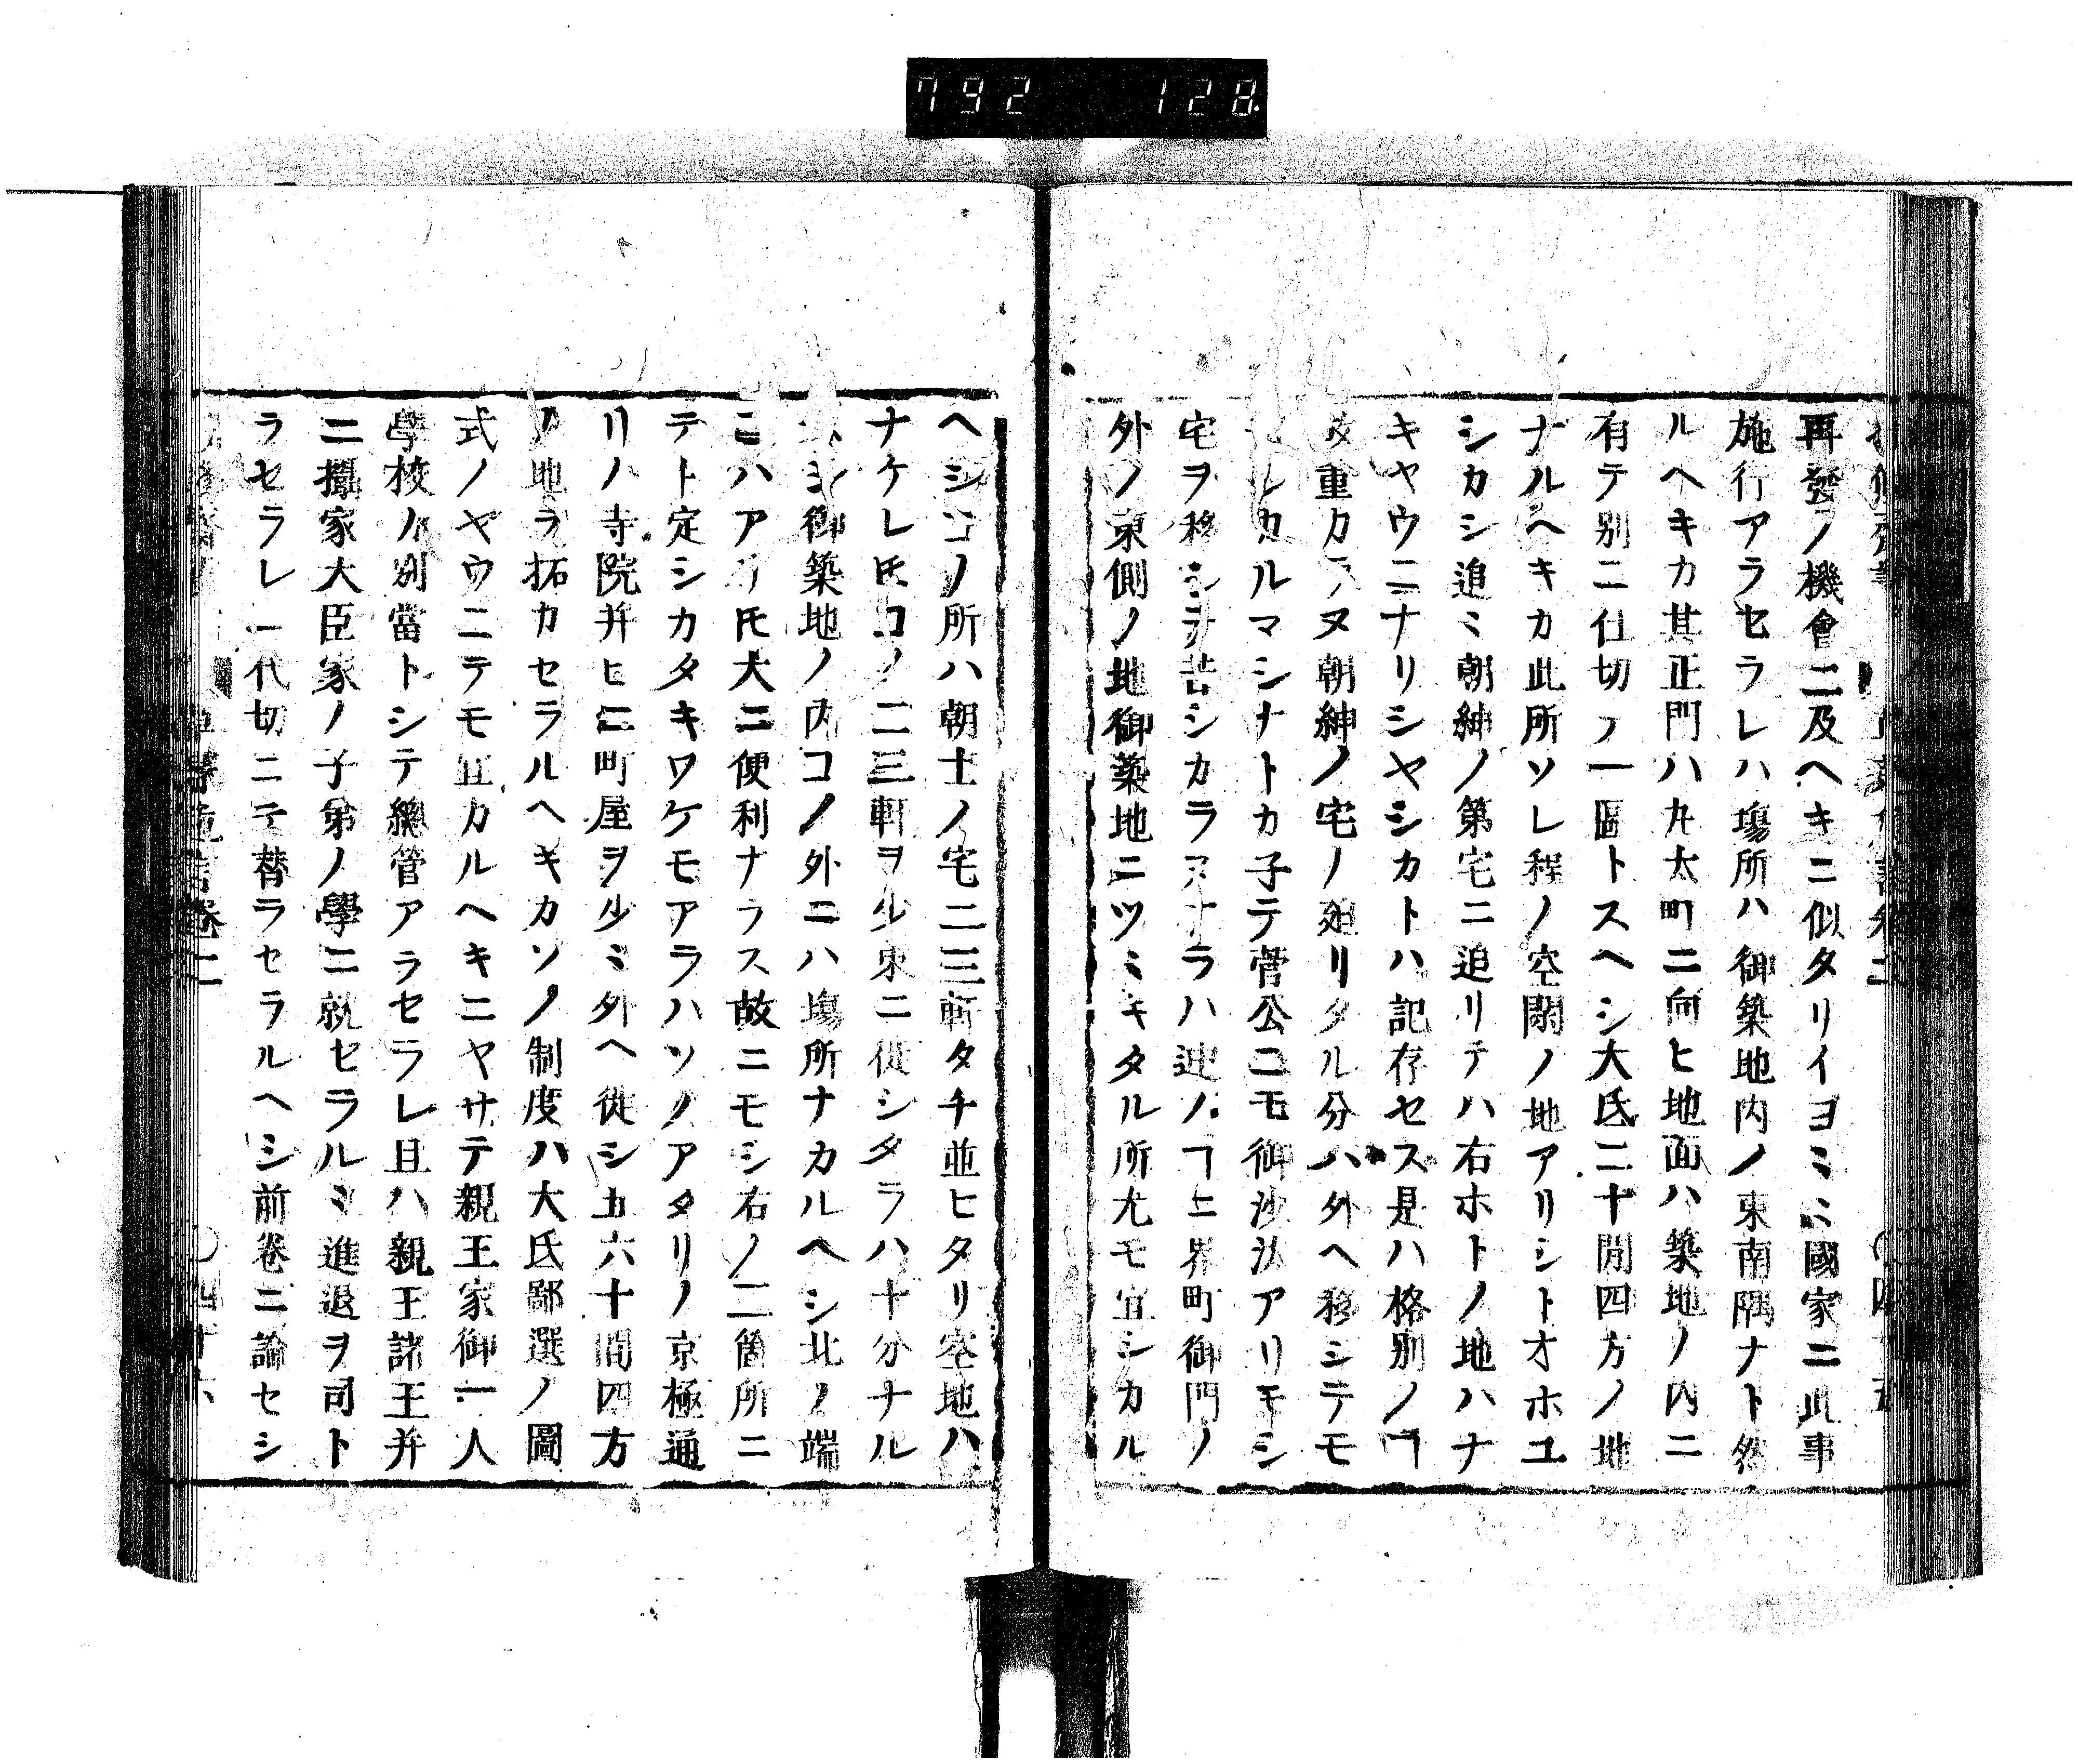 792 128
再發ノ機會ニ及ヘキニ似タリイヨミミ國家ニ此事
施行アラセラレハ塲所ハ御築地内ノ東南隅ナト然
ルヘキカ其正門ハ丸太町ニ向ヒ地面ハ築地ノ内ニ
有テ別ニ仕切ノ一區トスヘシ大氐二十間四方ノ地
ナルヘキカ此所ソレ程ノ空閑ノ地アリシトオホユ
シカシ追ミ朝紳ノ第宅ニ迫リテハ右ホトノ地ハナ
キヤウニナリシヤシカトハ記存セス是ハ格別ノヿ
故重カラヌ朝紳ノ宅ノ廻リタル分ハ外ヘ移シテモ
シカルマシナトカ子テ菅公ニモ御沙汰アリモシ
宅ヲ移シテ苦シカラヌナラハ迚ノヿニ界町御門ノ
外ノ東側ノ地御築地ニツミキタル所尤モ宜シカル
ヘシコノ所ハ朝士ノ宅二三軒タチ並ヒタリ空地ハ
ナケレ𪜈コノ二三軒ヲ少東ニ徙シタラハ十分ナル
ヘシ御築地ノ内コノ外ニハ塲所ナカルヘシ北ノ端
ニハアリ𪜈大ニ便利ナラス故ニモシ右ノ二箇所ニ
テト定シカタキワケモアラハソノアタリノ京極通
リノ寺院并ヒニ町屋ヲ少ミ外ヘ徙シ五六十間四方
ノ地ヲ拓カセラルヘキカソノ制度ハ大氐鄙選ノ圖
式ノヤウニテモ宜カルヘキニヤサテ親王家御一人
學校ノ別當トシテ總管アラセラレ且ハ親王諸王并
ニ攝家大臣家ノ子弟ノ學ニ就セラルミ進退ヲ司ト
ラセラレ一代切ニテ替ラセラルヘシ前卷ニ論セシ
卷二